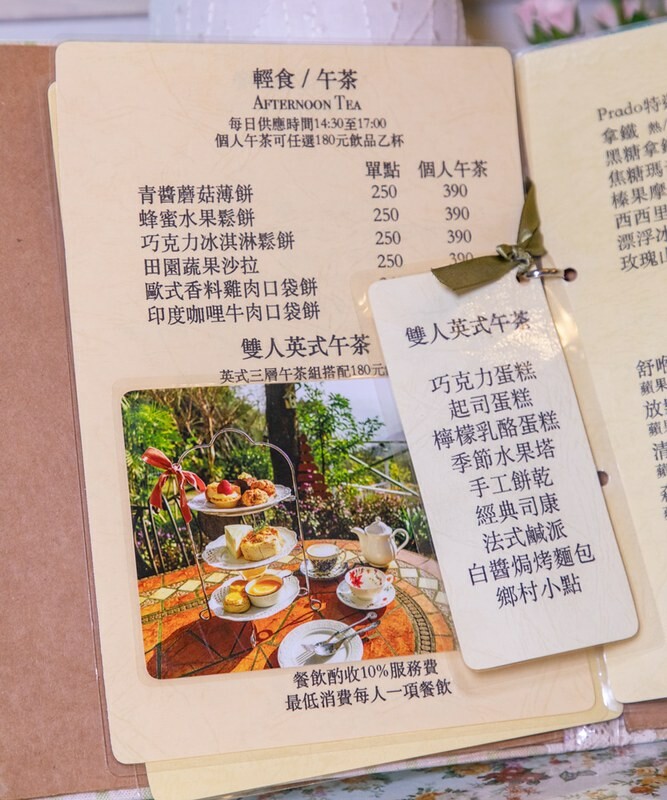 輕食 / 午茶
AFTERNOON TEA
每日供應時間14:30至17:00
個人午茶可任選180元飲品乙杯
單點 個人午茶
青醬蘑菇薄餅 250 390
蜂蜜水果鬆餅 250 390
巧克力冰淇淋鬆餅 250 390
田園蔬果沙拉 250 390
歐式香料雞肉口袋餅
印度咖哩牛肉口袋餅
雙人英式午茶
英式三層午茶組搭配180元
餐飲酌收10%服務費
最低消費每人一項餐飲
雙人英式午茶
巧克力蛋糕
起司蛋糕
檸檬乳酪蛋糕
季節水果塔
手工餅乾
經典司康
法式鹹派
白醬焗烤麵包
鄉村小點
Prado特
拿鐵 熱
黑糖拿
焦糖瑪
榛果摩
西西里
漂浮冰
玫瑰
舒
蘋果
放
蘋果
清